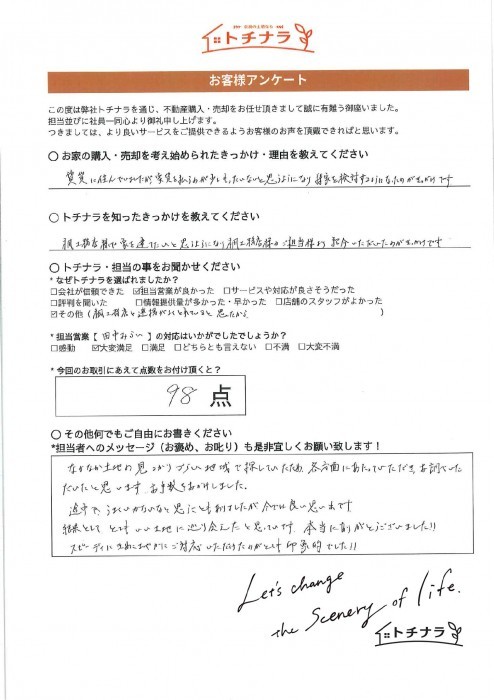 トチナラ
お客様アンケート
この度は弊社トチナラを通じ、不動産購入・売却をお任せ頂きまして誠に有難う御座いました。
担当並びに社員一同心より御礼申し上げます。
つきましては、より良いサービスをご提供できるようお客様のお声を頂戴できればと思います。
〇 お家の購入・売却を考え始められたきっかけ・理由を教えてください
賃貸に住んでいましたが家賃を払うのが少しもったいないと思うようになり 持家を検討するようになったのがきっかけです
〇 トチナラを知ったきっかけを教えてください
工務店様で家を建てたいと思うようになり 工務店様のご担当様より紹介いただいたのがきっかけです
〇 トチナラ・担当の事をお聞かせください
* なぜトチナラを選ばれましたか?
□会社が信頼できた ☑担当営業が良かった □サービスや対応が良さそうだった
□評判を聞いた □情報提供量が多かった・早かった □店舗のスタッフがよかった
☑その他 ( 工務店と連携がとれていると思ったから )
* 担当営業【 田中みらい 】の対応はいかがでしたでしょうか?
□感動 ☑大変満足 □満足 □どちらとも言えない □不満 □大変不満
* 今回のお取引にあえて点数をお付け頂くと?
98 点
〇 その他何でもご自由にお書きください
*担当者へのメッセージ(お褒め、お叱り)も是非宜しくお願い致します!
なかなか土地の見つかりづらい地域で探していたため、各方面にあたっていただき、お調べいた
だいたと思います お手数をおかけしました。
途中で、うまくいかないなと思うことも有りましたが 今では良い思い出です
結果として とてもいい土地に巡り会えたと思っています。本当に有りがとうございました!!
スピーディにきめこまやかにご対応いただけたのがとても印象的でした!!
Let's change
the Scenery of life.
トチナラ